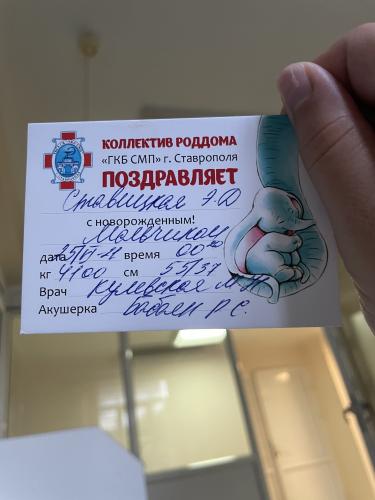 КОЛЛЕКТИВ РОДДОМА
«ГКБ СМП» г. Ставрополя
ПОЗДРАВЛЯЕТ
Ставицкая Э.Ю
с новорожденным!
Мальчиком
дата время 00
кг 4100 см 55/37
Врач Кулевская М.
Акушерка Бабаян Р С.